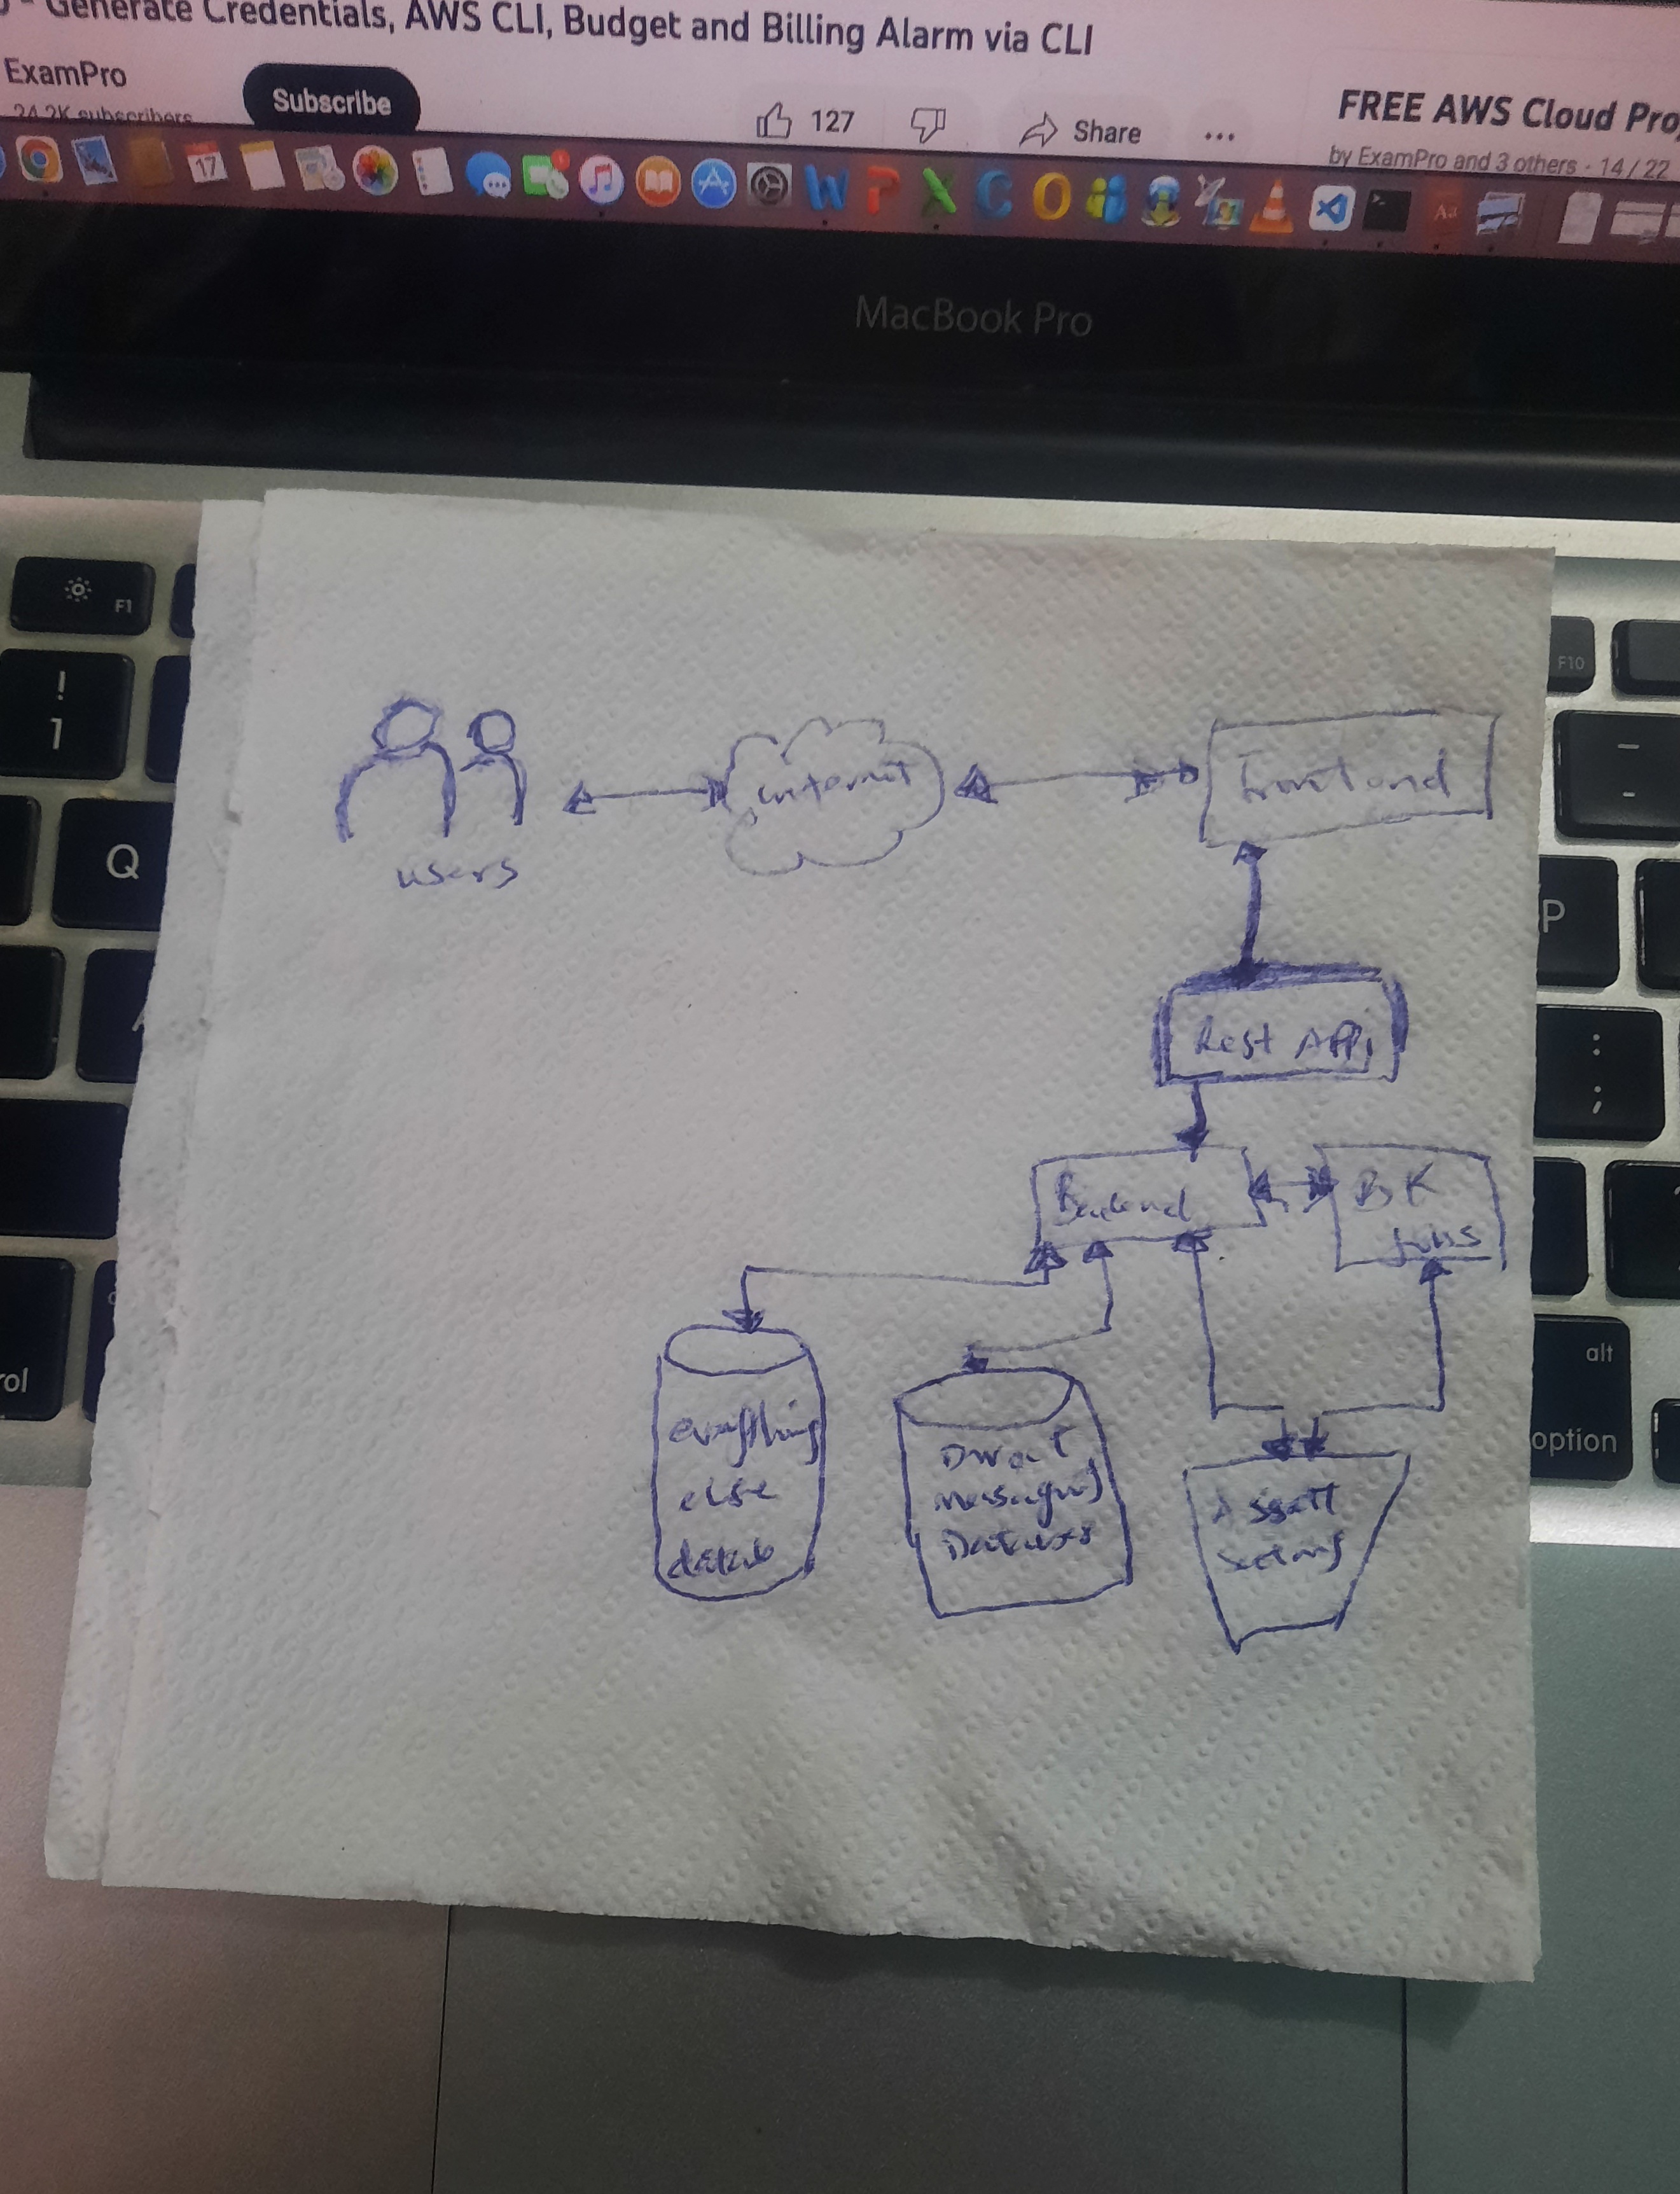 - Generate Credentials, AWS CLI, Budget and Billing Alarm via CLI
ExamPro
24.2K subscribers
Subscribe
127
Share
...
FREE AWS Cloud Pro
by ExamPro and 3 others - 14 / 22
17
W
P
X
C
O
Aa
MacBook Pro
F1
F10
!
1
-
-
Q
P
:
;
rol
alt
option
users
internet
Frontend
Rest APPi
Backend
BK
everything
else
messaging
Assett